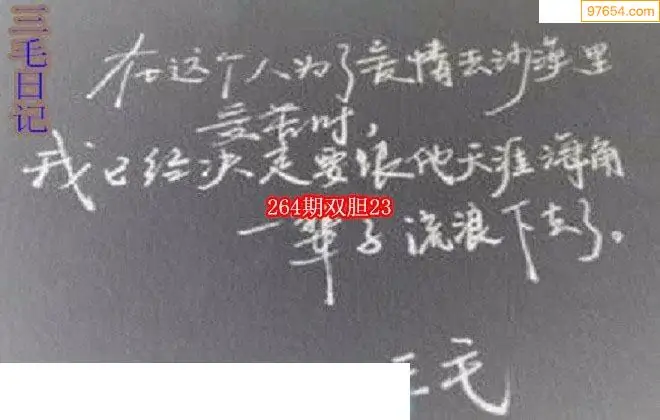 97654.com
三毛日记
在这个人为了爱情去沙漠里
受苦时,
我已经决定要跟他天涯海角
264期双胆23
一辈子流浪下去了。
三毛